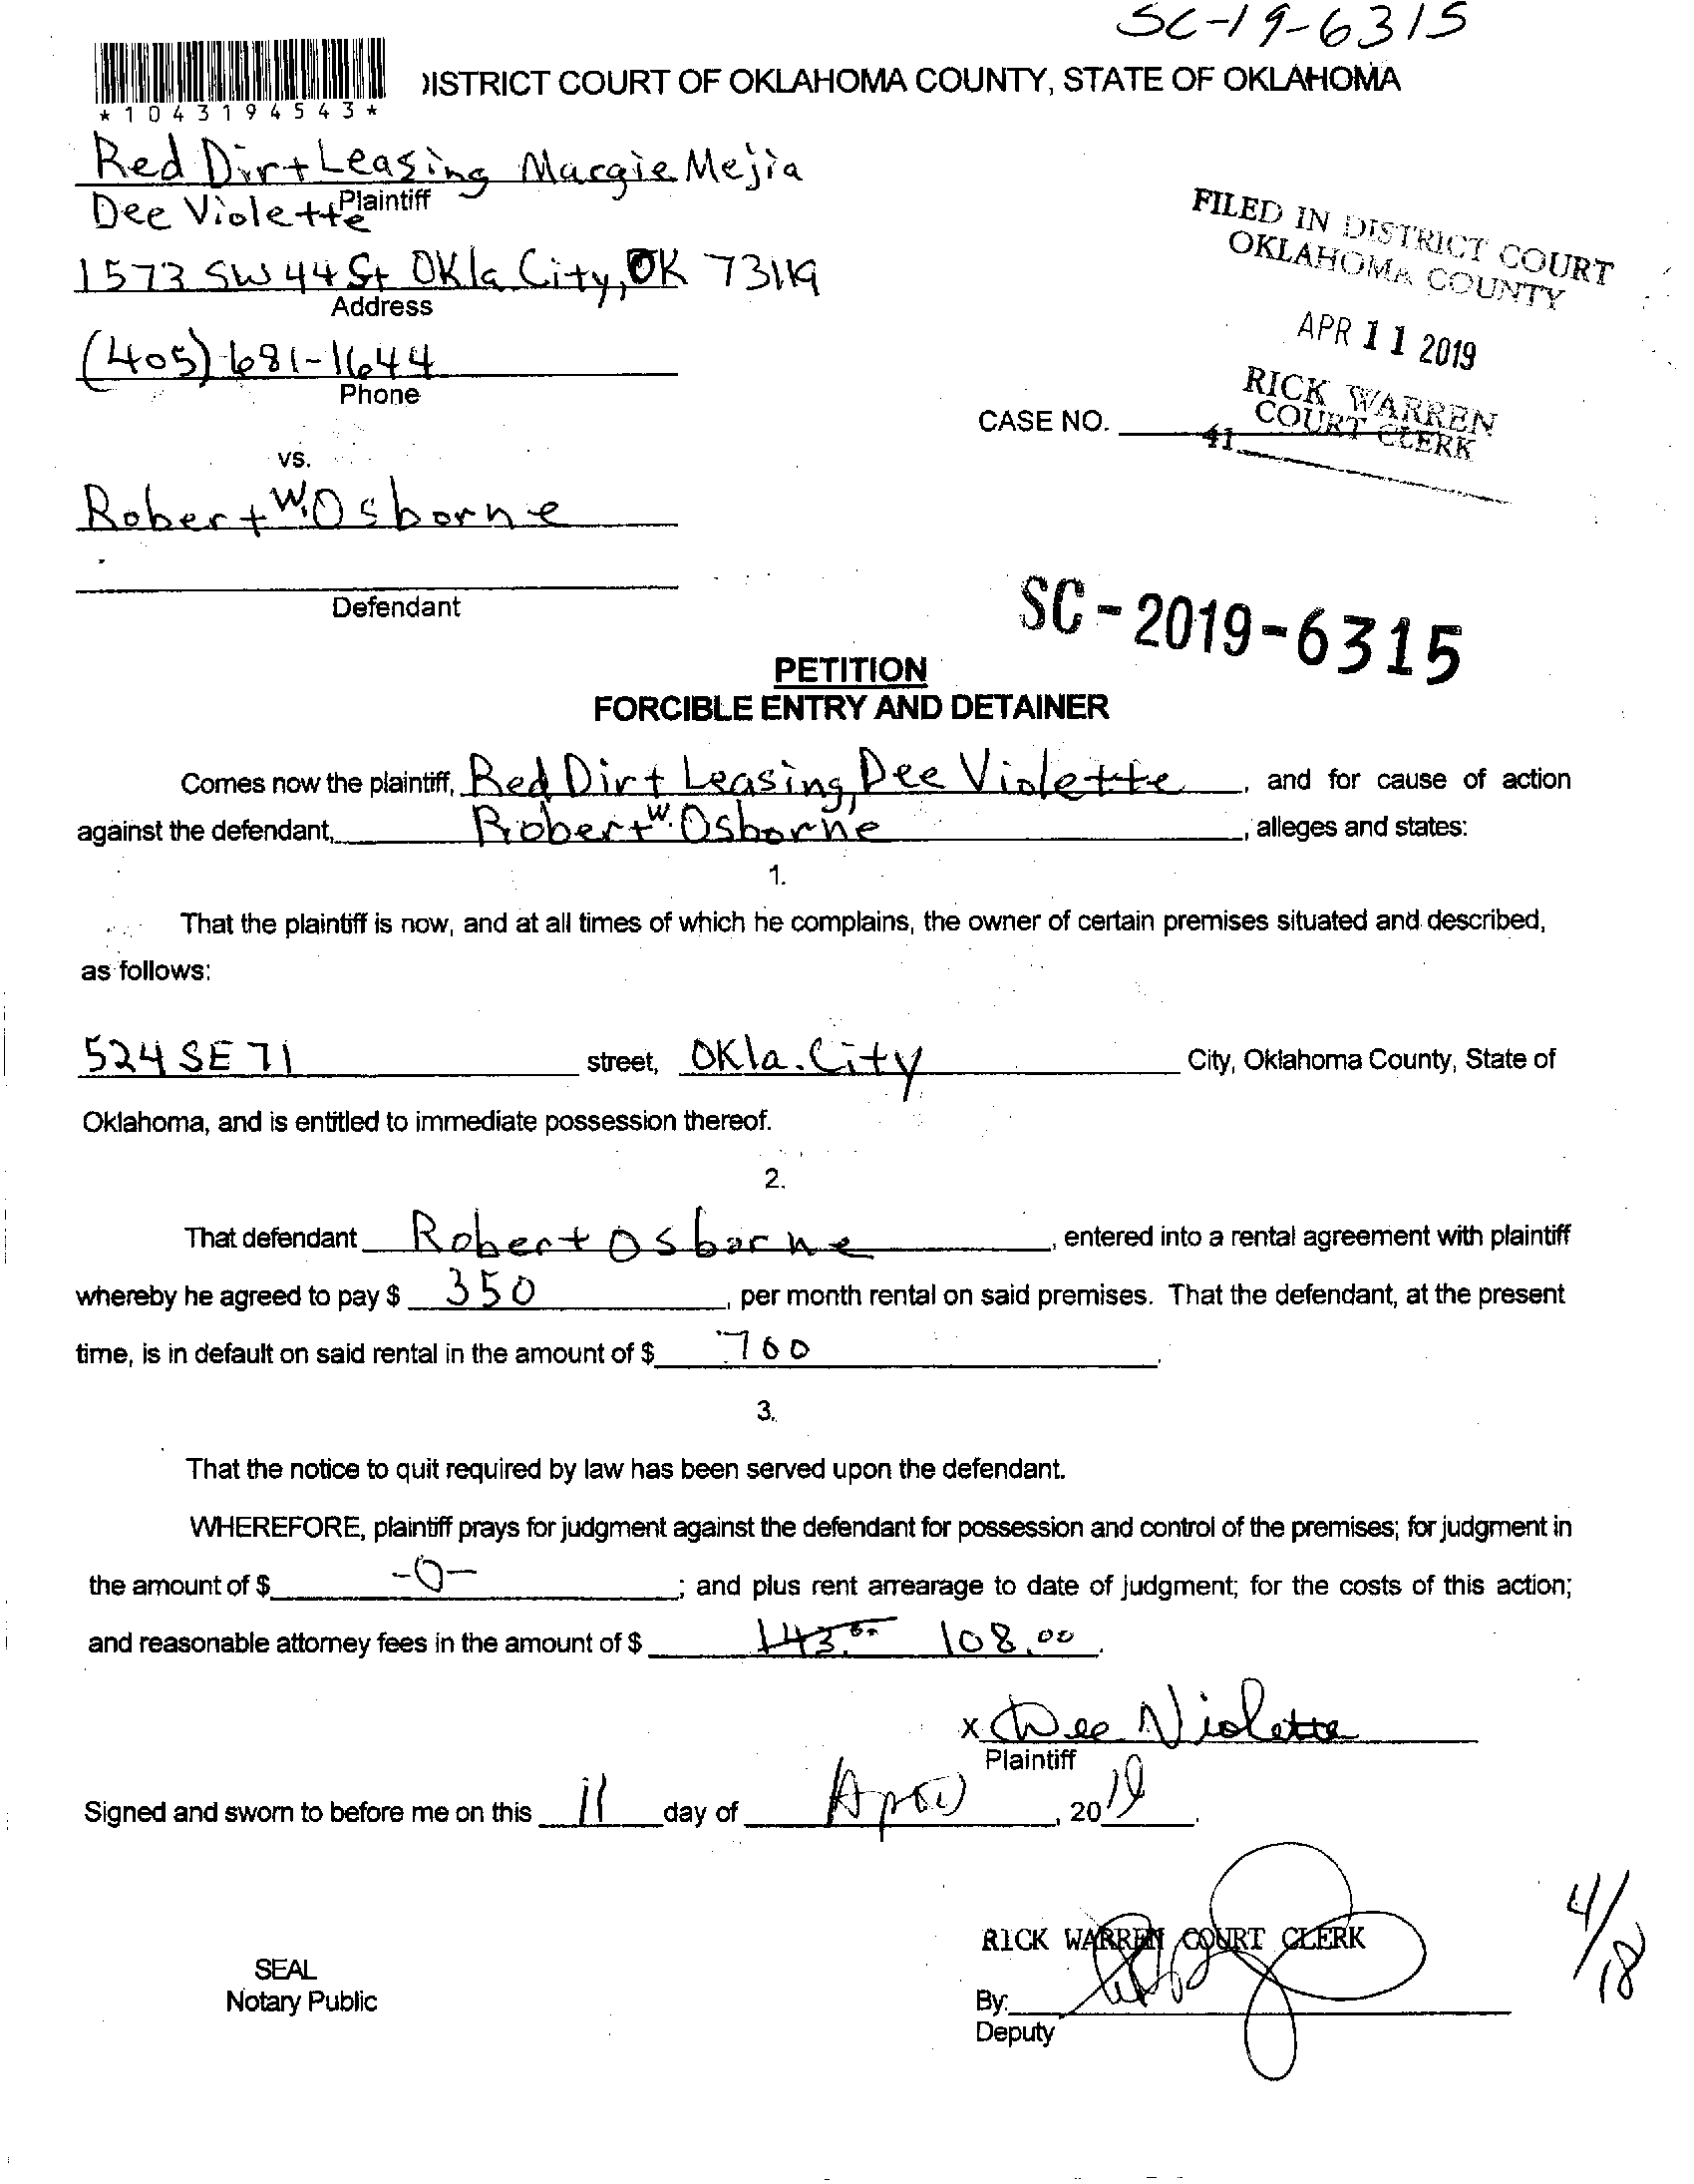 SC-19-6315
*1043194543*
DISTRICT COURT OF OKLAHOMA COUNTY, STATE OF OKLAHOMA
Red Dirt Leasing Margie Mejia
Dee Violette
Plaintiff
1573 SW 44 St Okla City, OK 73119
Address
(405) 681-1644
Phone
FILED IN DISTRICT COURT
OKLAHOMA COUNTY
APR 11 2019
RICK WARREN
COURT CLERK
41
CASE NO.
vs.
Robert W. Osborne
Defendant
SC-2019-6315
PETITION
FORCIBLE ENTRY AND DETAINER
Comes now the plaintiff, Red Dirt Leasing, Dee Violette, and for cause of action
against the defendant, Robert W. Osborne, alleges and states:
1.
That the plaintiff is now, and at all times of which he complains, the owner of certain premises situated and described,
as follows:
524 SE 71 street, Okla. City City, Oklahoma County, State of
Oklahoma, and is entitled to immediate possession thereof.
2.
That defendant Robert Osborne, entered into a rental agreement with plaintiff
whereby he agreed to pay $ 350, per month rental on said premises. That the defendant, at the present
time, is in default on said rental in the amount of $ 700.
3.
That the notice to quit required by law has been served upon the defendant.
WHEREFORE, plaintiff prays for judgment against the defendant for possession and control of the premises; for judgment in
the amount of $ -0-; and plus rent arrearage to date of judgment; for the costs of this action;
and reasonable attorney fees in the amount of $ 143.00 108.00.
x Dee Violette
Plaintiff
Signed and sworn to before me on this 11 day of April, 2019.
RICK WARREN COURT CLERK
4/18
SEAL
Notary Public
By:
Deputy